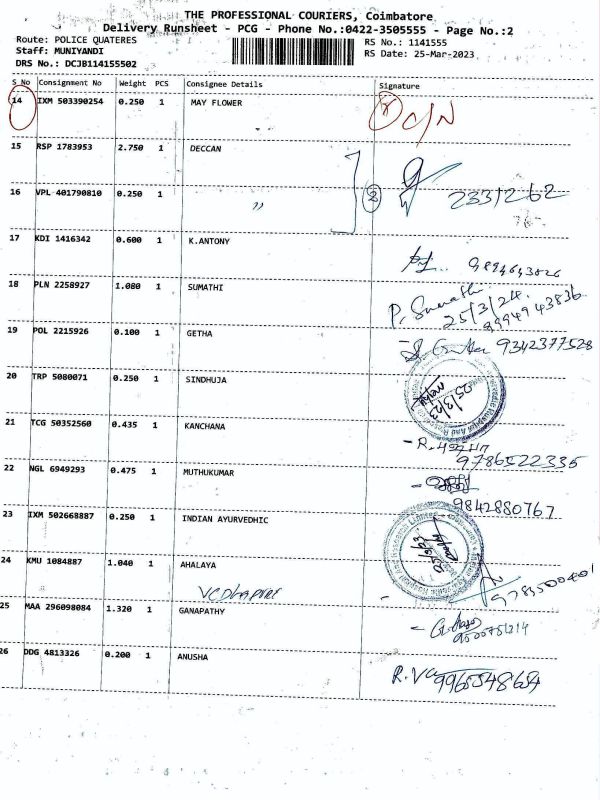 THE PROFESSIONAL COURIERS, Coimbatore
Delivery Runsheet - PCG - Phone No.:0422-3505555 - Page No.:2
Route: POLICE QUATERES
RS No.: 1141555
Staff: MUNIYANDI
RS Date: 25-Mar-2023
DRS No.: DCJB114155502
S No Consignment No Weight PCS Consignee Details Signature
14 IXM 503390254 0.250 1 MAY FLOWER C/N
15 RSP 1783953 2.750 1 DECCAN
16 VPL 401790810 0.250 1 " 2 2331262
17 KDI 1416342 0.600 1 K.ANTONY
18 PLN 2258927 1.080 1 SUMATHI P. Sumathi
25/3/24
9994943836
19 POL 2215926 0.100 1 GETHA 9342377528
20 TRP 5080071 0.250 1 SINDHUJA
25/3/23
21 TCG 50352560 0.435 1 KANCHANA
9786522335
22 NGL 6949293 0.475 1 MUTHUKUMAR
9842880767
23 IXM 502668887 0.250 1 INDIAN AYURVEDHIC
24 KMU 1084887 1.040 1 AHALAYA
25 MAA 296098084 1.320 1 GANAPATHY
26 DDG 4813326 0.200 1 ANUSHA